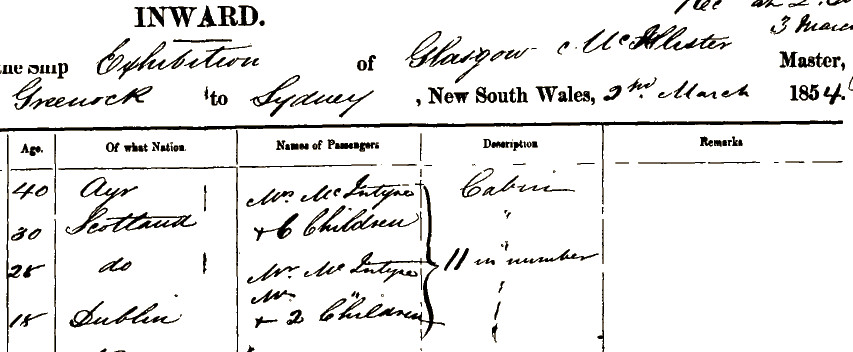 INWARD.
3 March
the Ship Exhibition of Glasgow McAllister Master,
Greenock to Sydney, New South Wales, 2nd March 1854.
Age. Of what Nation. Names of Passengers Description Remarks
40 Ayr Mrs McIntyre Cabin
30 Scotland + 6 Children "
28 do Mr. McIntyre 11 in number
Mrs "
18 Dublin + 2 Children "